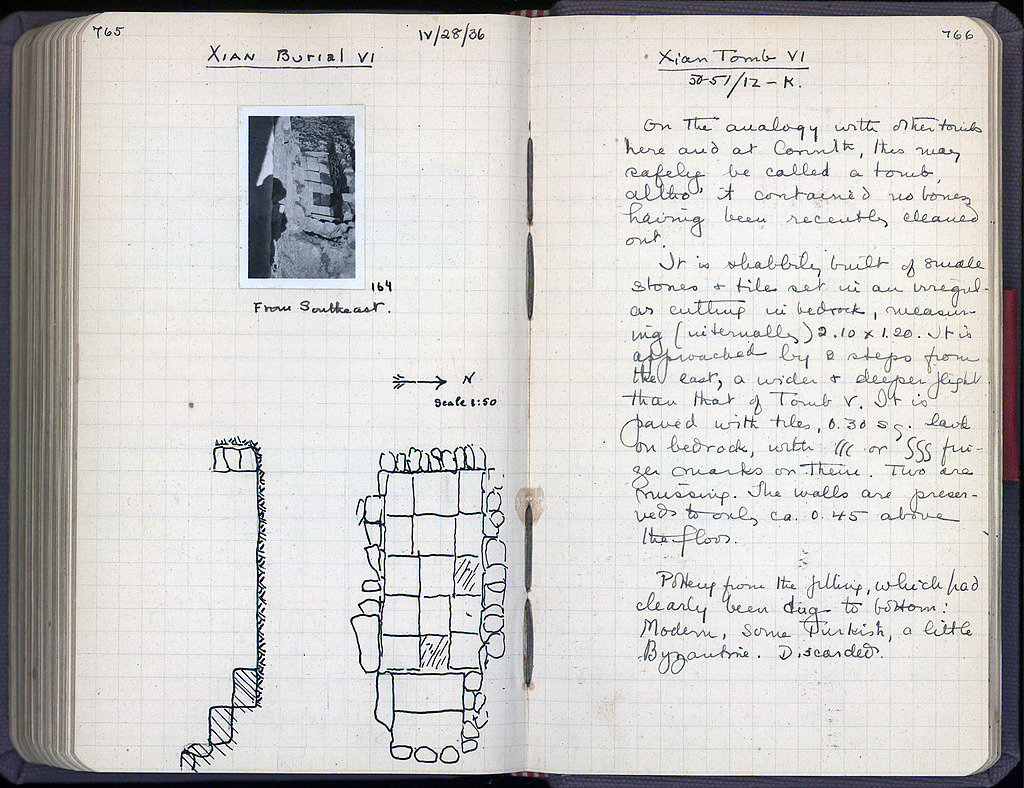 765
IV/28/36
XIAN BURIAL VI
164
From Southeast.
N
Scale 1:50
766
Xian Tomb VI
50-51/12-K.
On the analogy with other tombs
here and at Corinth, this may
safely be called a tomb,
altho' it contained no bones
having been recently cleaned
out.
It is shabbily built of small
stones & tiles set in an irregul-
ar cutting in bedrock, measur-
ing (internally) 2.10 x 1.20. It is
approached by 2 steps from
the east, a wider & deeper flight
than that of Tomb V. It is
paved with tiles, 0.30 sq. laid
on bedrock, with ((( or SSS fin-
ger marks on them. Two are
missing. The walls are preser-
ved to only ca. 0.45 above
the floor.
Pottery from the filling, which had
clearly been dug to bottom:
Modern, some Turkish, a little
Byzantine. Discarded.